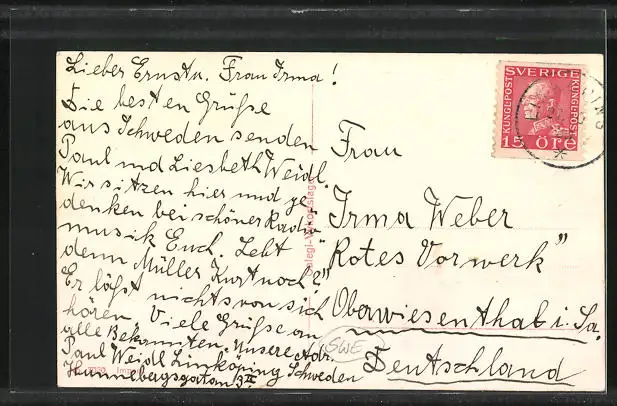 Lieber Ernst u. Frau Irma!
Die besten Grüße
aus Schweden senden
Paul und Liesbeth Weidl.
Wir sitzen hier und ge-
denken bei schöner Radio-
musik Euch. Lebt
denn Müller Kurt noch?
Er läßt nichts von sich
hören. Viele Grüße an
alle Bekannten. Unsere Adr.
Paul Weidl Linköping Schweden
Hunnebergsgatan
Frau
Irma Weber
"Rotes Vorwerk"
Oberwiesenthal i. Sa.
Deutschland
SWE
SVERIGE
KUNGL.POST
KUNGL.POST
15 ÖRE